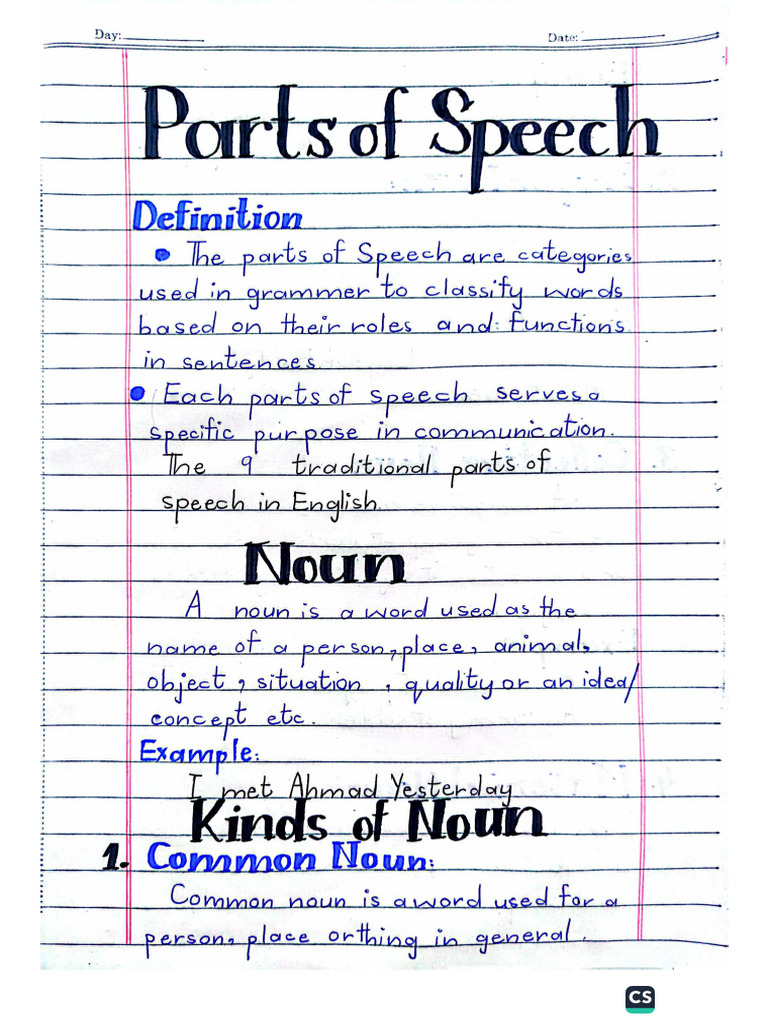 Day:
Date:
Parts of Speech
Definition
• The parts of Speech are categories
used in grammer to classify words
based on their roles and functions
in sentences.
• Each parts of speech serves a
specific purpose in communication.
The 9 traditional parts of
speech in English.
Noun
A noun is a word used as the
name of a person, place, animal,
object, situation, quality or an idea/
concept etc.
Example:
I met Ahmad Yesterday
Kinds of Noun
1. Common Noun:
Common noun is a word used for a
person, place or thing in general.
CS